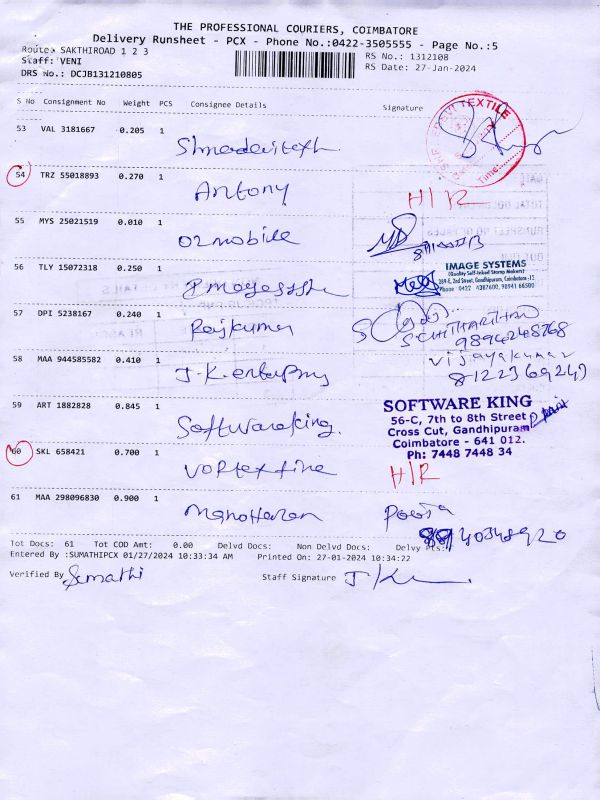 THE PROFESSIONAL COURIERS, COIMBATORE
Delivery Runsheet - PCX - Phone No.:0422-3505555 - Page No.:5
Route: SAKTHIROAD 1 2 3
RS No.: 1312108
Staff: VENI
RS Date: 27-Jan-2024
DRS No.: DCJB131210805
S No Consignment No Weight PCS Consignee Details Signature
53 VAL 3181667 0.205 1
TEXTILE
Time:
54 TRZ 55018893 0.270 1
Antony H/R
55 MYS 25021519 0.010 1
ozmobile
56 TLY 15072318 0.250 1
IMAGE SYSTEMS
(Quality Self-Inked Stamp Makers)
289-E, 2nd Street, Gandhipuram, Coimbatore -12
Phone : 0422 4387600, 98941 66500
57 DPI 5238167 0.240 1
Rajkumar
9894248768
58 MAA 944585582 0.410 1
vijayakumar
J.K.enterprises
8122369249
59 ART 1882828 0.845 1
Softwareking.
SOFTWARE KING
56-C, 7th to 8th Street
Cross Cut, Gandhipuram
Coimbatore - 641 012.
Ph: 7448 7448 34
60 SKL 658421 0.700 1
H/R
61 MAA 298096830 0.900 1
Manoharan Pooja
Tot Docs: 61 Tot COD Amt: 0.00 Delvd Docs: Non Delvd Docs: Delvy Pts:
Entered By :SUMATHIPCX 01/27/2024 10:33:34 AM Printed On: 27-01-2024 10:34:22
Verified By Sumathi Staff Signature